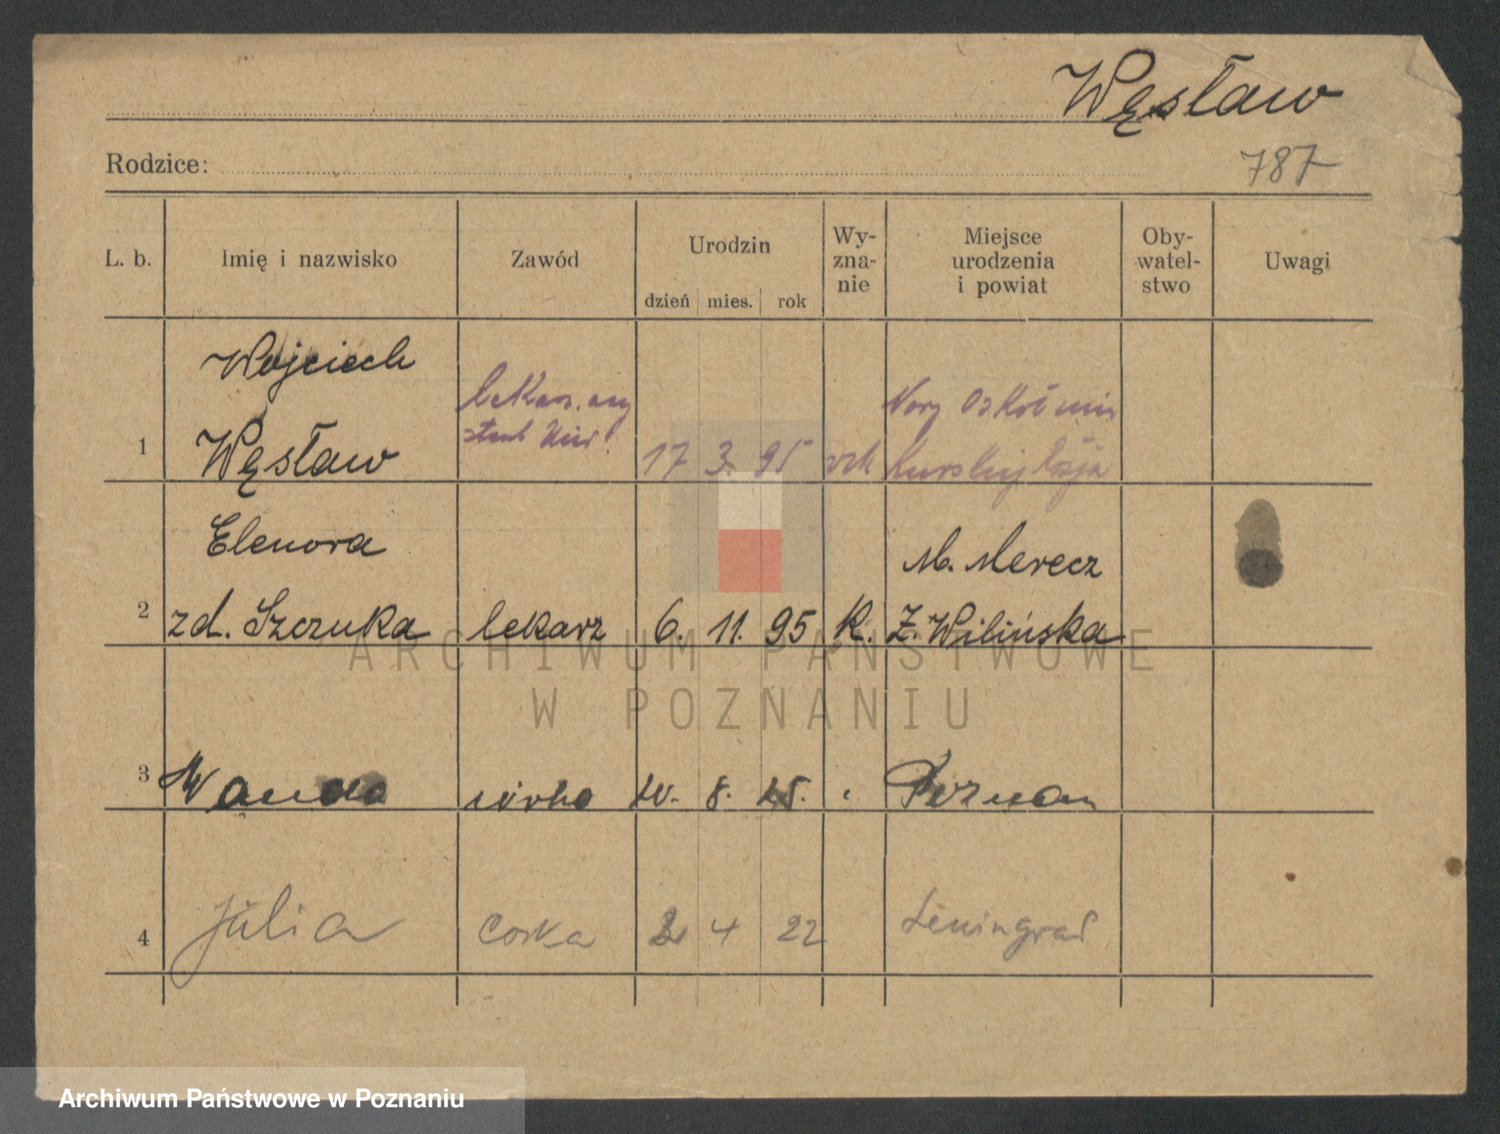 Węsław
Rodzice:
787
L. b.
Imię i nazwisko
Zawód
Urodzin
dzień mies. rok
Wy-
zna-
nie
Miejsce
urodzenia
i powiat
Oby-
watel-
stwo
Uwagi
Wojciech
1 Węsław
lekarz. asy
stent
17 3. 95
Nowy Oskoł
Elenora
M. Merecz
2 zd. Szczuka lekarz 6. 11. 95 K. Z. Wilińska
3 Wanda córka 8. 25. Poznań
4 Julia corka 2 4 22 Leningrad
ARCHIWUM PAŃSTWOWE
W POZNANIU
Archiwum Państwowe w Poznaniu